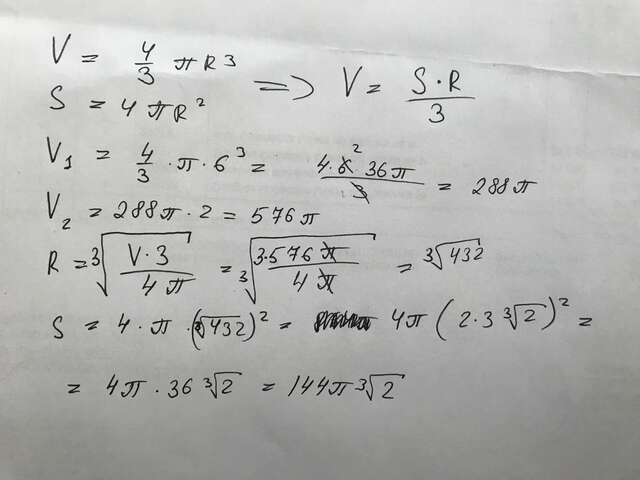 V = 4/3 πR³
S = 4πR² => V = S·R/3
V₁ = 4/3 · π · 6³ = 4·6² 36π/3 = 288π
V₂ = 288π · 2 = 576π
R = ³√(V·3/4π) = ³√(3·576π/4π) = ³√432
S = 4·π·(³√432)² = 4π(2·3 ³√2)² =
= 4π·36 ³√2 = 144π ³√2